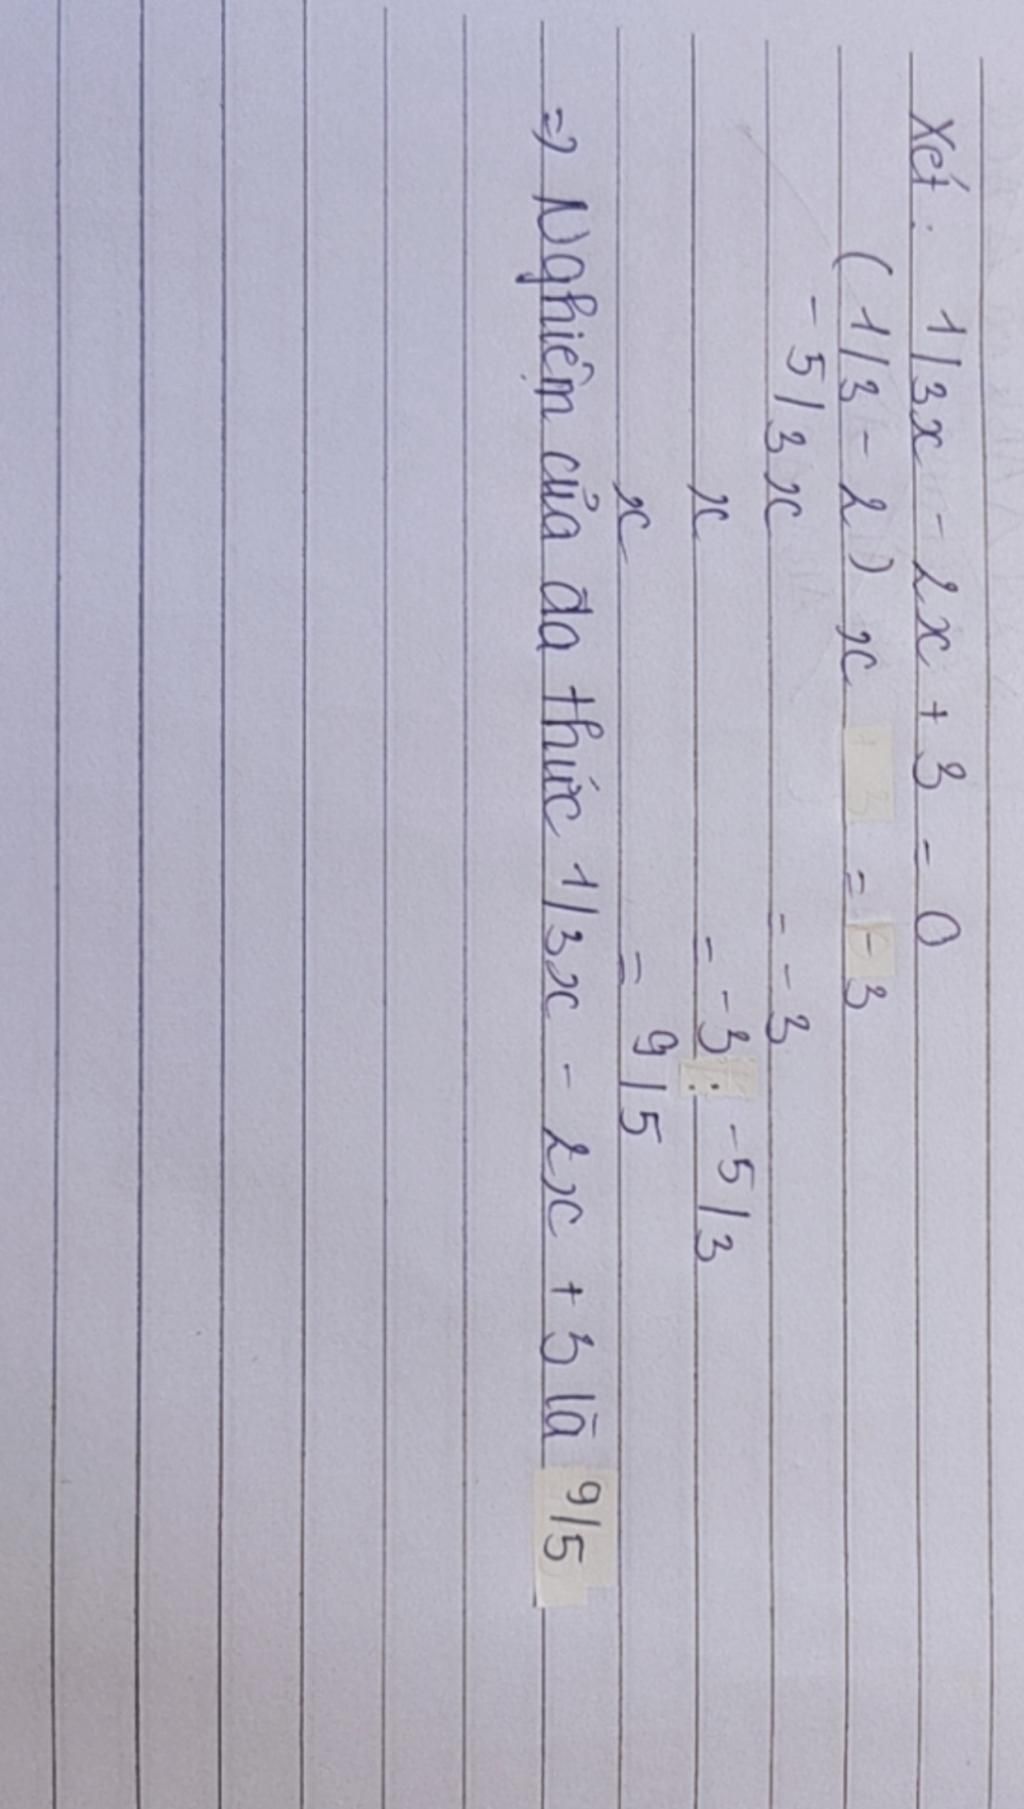 Xét: 1/3x - 2x + 3 = 0
(1/3 - 2) x = -3
-5/3x = -3
x = -3 : -5/3
x = 9/5
=> Nghiệm của đa thức 1/3x - 2x + 3 là 9/5